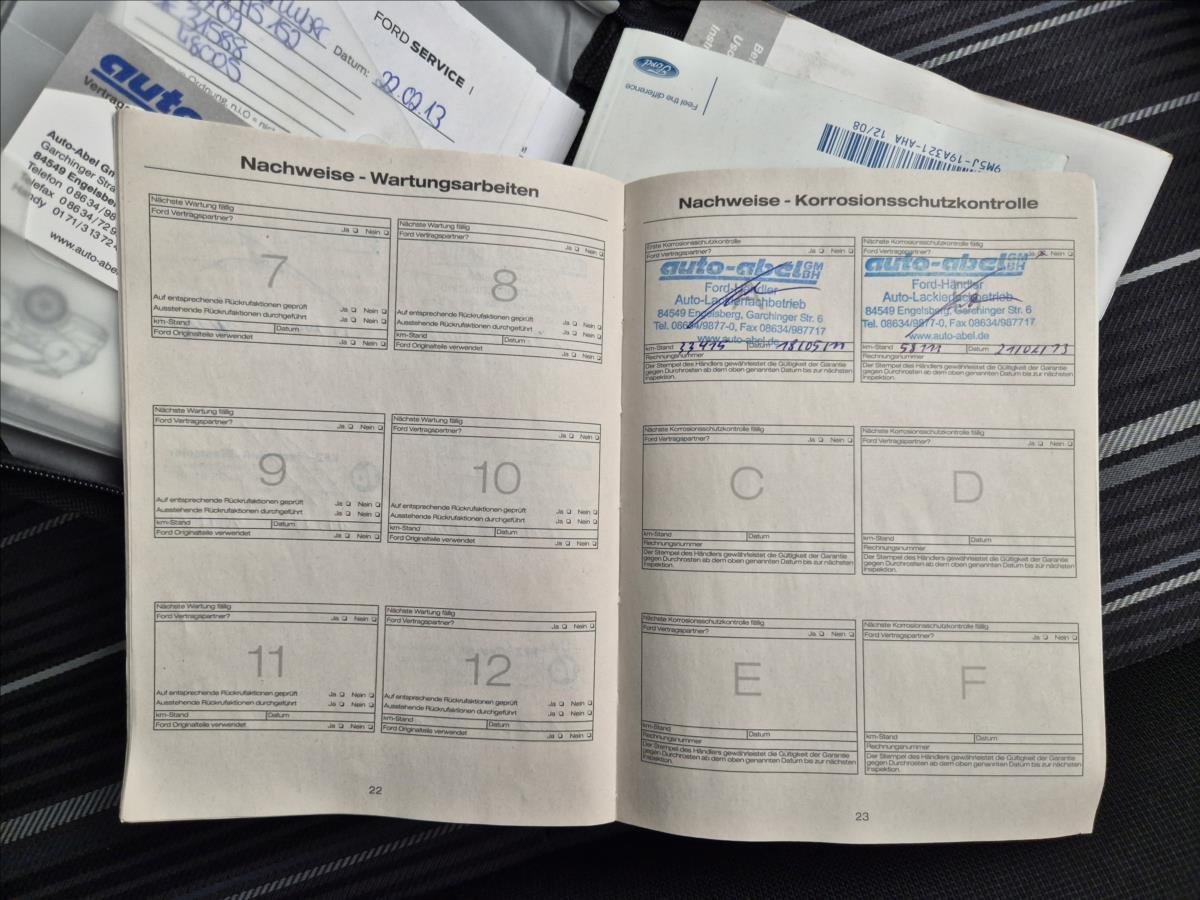 FORD SERVICE
Datum: 22.02.13
Auto-Abel Gm
Garchinger Stra
84549 Engelsbe
Telefon 0 86 34/98
Telefax 0 86 34/72 9
Handy 01 71/3 13 72
www.auto-abel
Feel the difference
Ford
9M5J-19A321-AHA 12/08
Nachweise - Wartungsarbeiten
Nächste Wartung fällig
Ford Vertragspartner? Ja Nein
7
Auf entsprechende Rückrufaktionen geprüft Ja Nein
Ausstehende Rückrufaktionen durchgeführt Ja Nein
km-Stand Datum
Ford Originalteile verwendet Ja Nein
Nächste Wartung fällig
Ford Vertragspartner? Ja Nein
8
Auf entsprechende Rückrufaktionen geprüft Ja Nein
Ausstehende Rückrufaktionen durchgeführt Ja Nein
km-Stand Datum
Ford Originalteile verwendet Ja Nein
Nächste Wartung fällig
Ford Vertragspartner? Ja Nein
9
Auf entsprechende Rückrufaktionen geprüft Ja Nein
Ausstehende Rückrufaktionen durchgeführt Ja Nein
km-Stand Datum
Ford Originalteile verwendet Ja Nein
Nächste Wartung fällig
Ford Vertragspartner? Ja Nein
10
Auf entsprechende Rückrufaktionen geprüft Ja Nein
Ausstehende Rückrufaktionen durchgeführt Ja Nein
km-Stand Datum
Ford Originalteile verwendet Ja Nein
Nächste Wartung fällig
Ford Vertragspartner? Ja Nein
11
Auf entsprechende Rückrufaktionen geprüft Ja Nein
Ausstehende Rückrufaktionen durchgeführt Ja Nein
km-Stand Datum
Ford Originalteile verwendet Ja Nein
Nächste Wartung fällig
Ford Vertragspartner? Ja Nein
12
Auf entsprechende Rückrufaktionen geprüft Ja Nein
Ausstehende Rückrufaktionen durchgeführt Ja Nein
km-Stand Datum
Ford Originalteile verwendet Ja Nein
22
Nachweise - Korrosionsschutzkontrolle
Erste Korrosionsschutzkontrolle
Ford Vertragspartner? Ja Nein
auto-abel GMBH
Ford-Händler
Auto-Lackierfachbetrieb
84549 Engelsberg, Garchinger Str. 6
Tel. 08634/9877-0, Fax 08634/987717
www.auto-abel.de
km-Stand Datum
Rechnungsnummer
Der Stempel des Händlers gewährleistet die Gültigkeit der Garantie
gegen Durchrosten ab dem oben genannten Datum bis zur nächsten
Inspektion.
Nächste Korrosionsschutzkontrolle fällig
Ford Vertragspartner? Ja Nein
auto-abel GMBH
Ford-Händler
Auto-Lackierfachbetrieb
84549 Engelsberg, Garchinger Str. 6
Tel. 08634/9877-0, Fax 08634/987717
www.auto-abel.de
km-Stand Datum
Rechnungsnummer
Der Stempel des Händlers gewährleistet die Gültigkeit der Garantie
gegen Durchrosten ab dem oben genannten Datum bis zur nächsten
Inspektion.
Nächste Korrosionsschutzkontrolle fällig
Ford Vertragspartner? Ja Nein
C
km-Stand Datum
Rechnungsnummer
Der Stempel des Händlers gewährleistet die Gültigkeit der Garantie
gegen Durchrosten ab dem oben genannten Datum bis zur nächsten
Inspektion.
Nächste Korrosionsschutzkontrolle fällig
Ford Vertragspartner? Ja Nein
D
km-Stand Datum
Rechnungsnummer
Der Stempel des Händlers gewährleistet die Gültigkeit der Garantie
gegen Durchrosten ab dem oben genannten Datum bis zur nächsten
Inspektion.
Nächste Korrosionsschutzkontrolle fällig
Ford Vertragspartner? Ja Nein
E
km-Stand Datum
Rechnungsnummer
Der Stempel des Händlers gewährleistet die Gültigkeit der Garantie
gegen Durchrosten ab dem oben genannten Datum bis zur nächsten
Inspektion.
Nächste Korrosionsschutzkontrolle fällig
Ford Vertragspartner? Ja Nein
F
km-Stand Datum
Rechnungsnummer
Der Stempel des Händlers gewährleistet die Gültigkeit der Garantie
gegen Durchrosten ab dem oben genannten Datum bis zur nächsten
Inspektion.
23